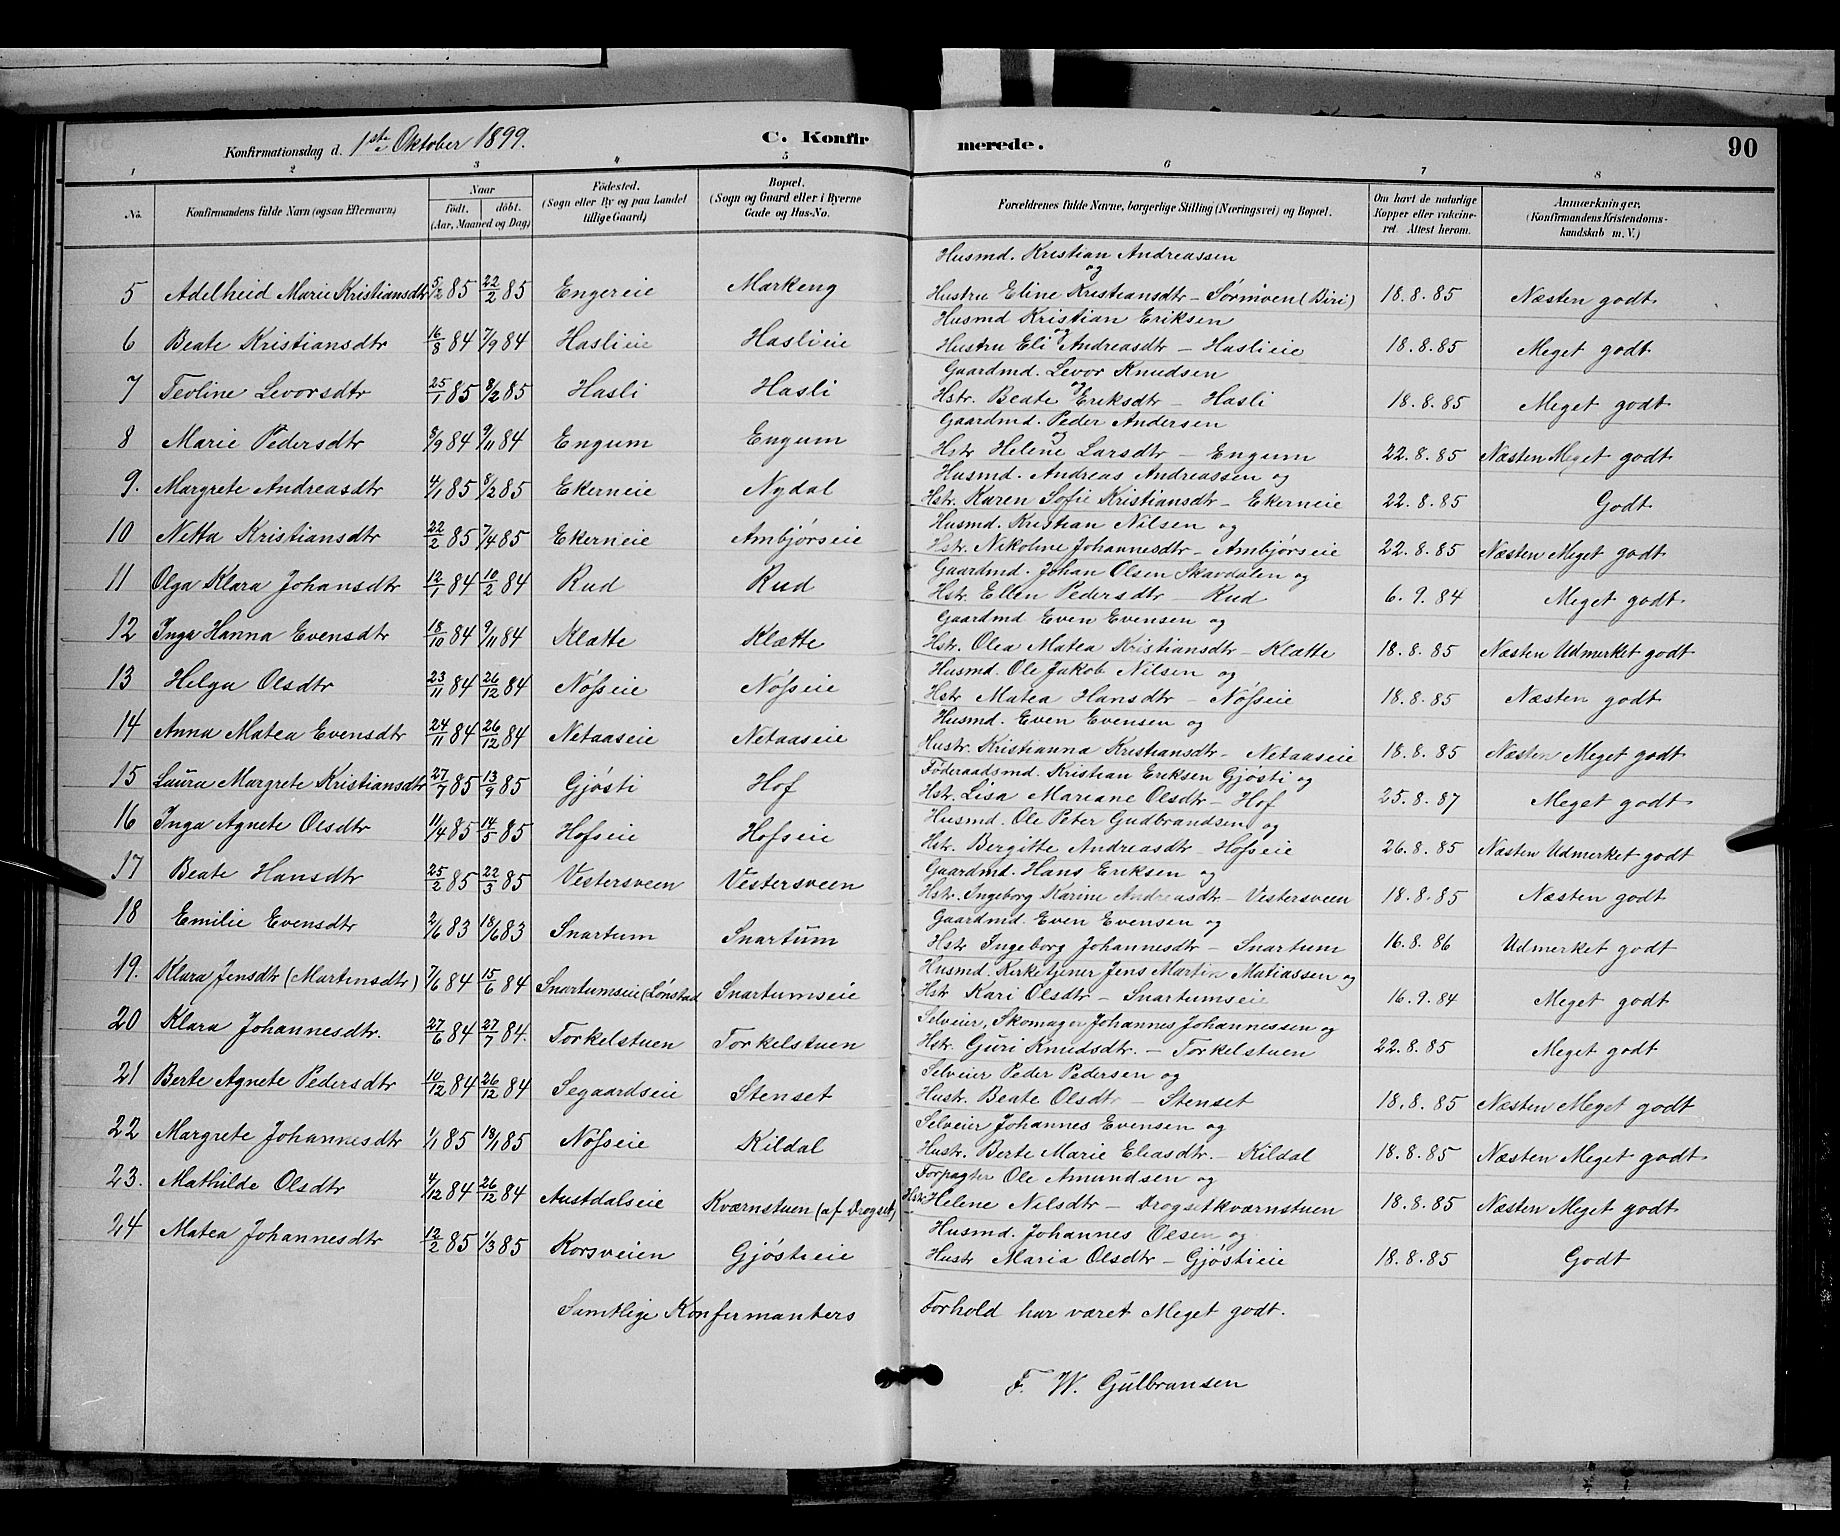 Konfirmationsdag d. 1ste Oktober 1899. C. Konfirmerede. 90
1 2 3 4 5 6 7 8
No. Konfirmandens fulde Navn (ogsaa Efternavn) Naar født. døbt. (Aar, Maaned og Dag) Fødested. (Sogn eller By og paa Landet tillige Gaard) Bopæl. (Sogn og Gaard eller i Byerne Gade og Hus-No. Forældrenes fulde Navne, borgerlige Stilling (Næringsvei) og Bopæl. Om havt de naturlige Kopper eller vaccineret. Attest herom. Anmerkninger. (Konfirmandens Kristendomskundskab m. V.)
Husmd. Kristian Andreassen og
5 Adelheid Marie Kristiansdtr 5/2 85 22/2 85 Engereie Markeng Hustru Eline Kristiansdtr - Sørmoen (Biri) 18.8.85 Næsten godt
Husmd Kristian Eriksen og
6 Beate Kristiansdtr 16/8 84 7/9 84 Haslieie Haslieie Hustru Eli Andreasdtr - Haslieie 18.8.85 Meget godt
Gaardmd. Levor Knudsen og
7 Teoline Levorsdtr 25/1 85 8/2 85 Hasli Hasli Hstr. Beate Eriksdtr - Hasli 18.8.85 Meget godt
Gaardmd. Peder Andersen og
8 Marie Pedersdtr 8/9 84 9/11 84 Engum Engum Hstr Helene Larsdtr - Engum 22.8.85 Næsten Meget godt
Husmd. Andreas Andreassen og
9. Margrete Andreasdtr 4/1 85 8/2 85 Ekerneie Nydal Hstr. Karen Sofie Kristiansdtr - Ekerneie 22.8.85 Godt
Husmd. Kristian Nilsen og
10 Netta Kristiansdtr 22/2 85 7/4 85 Ekerneie Ambjørseie Hstr. Nikoline Johannesdtr - Ambjørseie 22.8.85 Næsten Meget godt
Gaardmd. Johan Olsen Skavdalen og
11 Olga Klara Johansdtr 12/1 84 10/2 84 Rud Rud Hstr. Ellen Pedersdtr - Rud 6.9.84 Meget godt
Gaardmd Even Evensen og
12 Inga Hanna Evensdtr 18/10 84 9/11 84 Klætte Klætte Hstr. Olea Matea Kristiansdtr - Klætte 18.8.85 Næsten Udmerket godt
Husmd. Ole Jakob Nilsen og
13 Helga Olsdtr 23/11 84 26/12 84 Nøfseie Nøfseie Hstr Matea Hansdtr - Nøfseie 18.8.85 Næsten godt
Husmd. Even Evensen og
14 Anna Matea Evensdtr 24/11 84 26/12 84 Netaaseie Netaaseie Hustr. Kristianna Kristiansdtr - Netaaseie 18.8.85 Næsten Meget godt
Føderaadsmd. Kristian Eriksen Gjøsti og
15 Laura Margrete Kristiansdtr 27/7 85 13/9 85 Gjøsti Hof Hstr. Lisa Mariane Olsdtr - Hof 25.8.87 Meget godt
Husmd. Ole Peter Gudbrandsen og
16 Inga Agnete Olsdtr 11/4 85 14/5 85 Hofseie Hofseie Hstr. Bergitte Andreasdtr - Hofseie 26.8.85 Næsten Udmerket godt
Gaardmd. Hans Eriksen og
17 Beate Hansdtr 25/2 85 22/3 85 Vestersveen Vestersveen Hstr. Ingeborg Karine Andreasdtr - Vestersveen 18.8.85 Næsten godt
Gaardmd. Even Evensen og
18 Emilie Evensdtr 2/6 83 18/6 83 Snartum Snartum Hstr Ingeborg Johannesdtr - Snartum 16.8.86 Udmerket godt
Husmd. Kirketjener Jens Martin Matiassen og
19. Klara Jensdtr (Martinsdtr) 7/6 84 15/6 84 Snartumseie (Lønstad Snartumseie Hstr Kari Olsdtr - Snartumseie 16.9.84 Meget godt
Selveier, Skomager Johannes Johannessen og
20 Klara Johannesdtr. 27/6 84 27/7 84. Torkelstuen Torkelstuen Hstr. Guri Knudsdtr. - Torkelstuen 22.8.85 Meget godt
Selveier Peder Pedersen og
21 Berte Agnete Pedersdtr 10/12 84 26/12 84 Segaardseie Stenset Hustr. Beate Olsdtr - Stenset 18.8.85 Næsten Meget godt
Selveier Johannes Evensen og
22 Margrete Johannesdtr 1/1 85 18/1 85 Nøfseie Kildal Hustr. Berte Marie Eliasdtr. - Kildal 18.8.85 Næsten Meget godt
Forpagter Ole Amundsen og
23. Mathilde Olsdtr 4/12 84 26/12 84 Austdalseie Kværnstuen (af Drogset) Hstr. Helene Nilsdtr - Drogsetkværnstuen 18.8.85 Næsten Meget godt
Husmd. Johannes Olsen og
24 Matea Johannesdtr 12/2 85 1/3 85 Korsveien Gjøstieie Hustr Maria Olsdtr - Gjøstieie 18.8.85 Godt
Samtlige Konfirmanters Forhold har været Meget godt.
F. W. Gulbransen